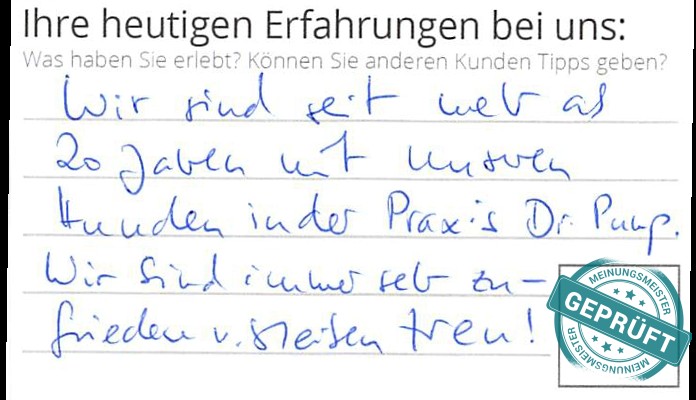 Ihre heutigen Erfahrungen bei uns:
Was haben Sie erlebt? Können Sie anderen Kunden Tipps geben?
Wir sind seit mehr als
20 Jahren mit unseren
Hunden in der Praxis Dr. Pump.
Wir sind immer sehr zu-
frieden u. bleiben treu!
MEINUNGSMEISTER
GEPRÜFT
MEINUNGSMEISTER
MEINUNGSMEISTER